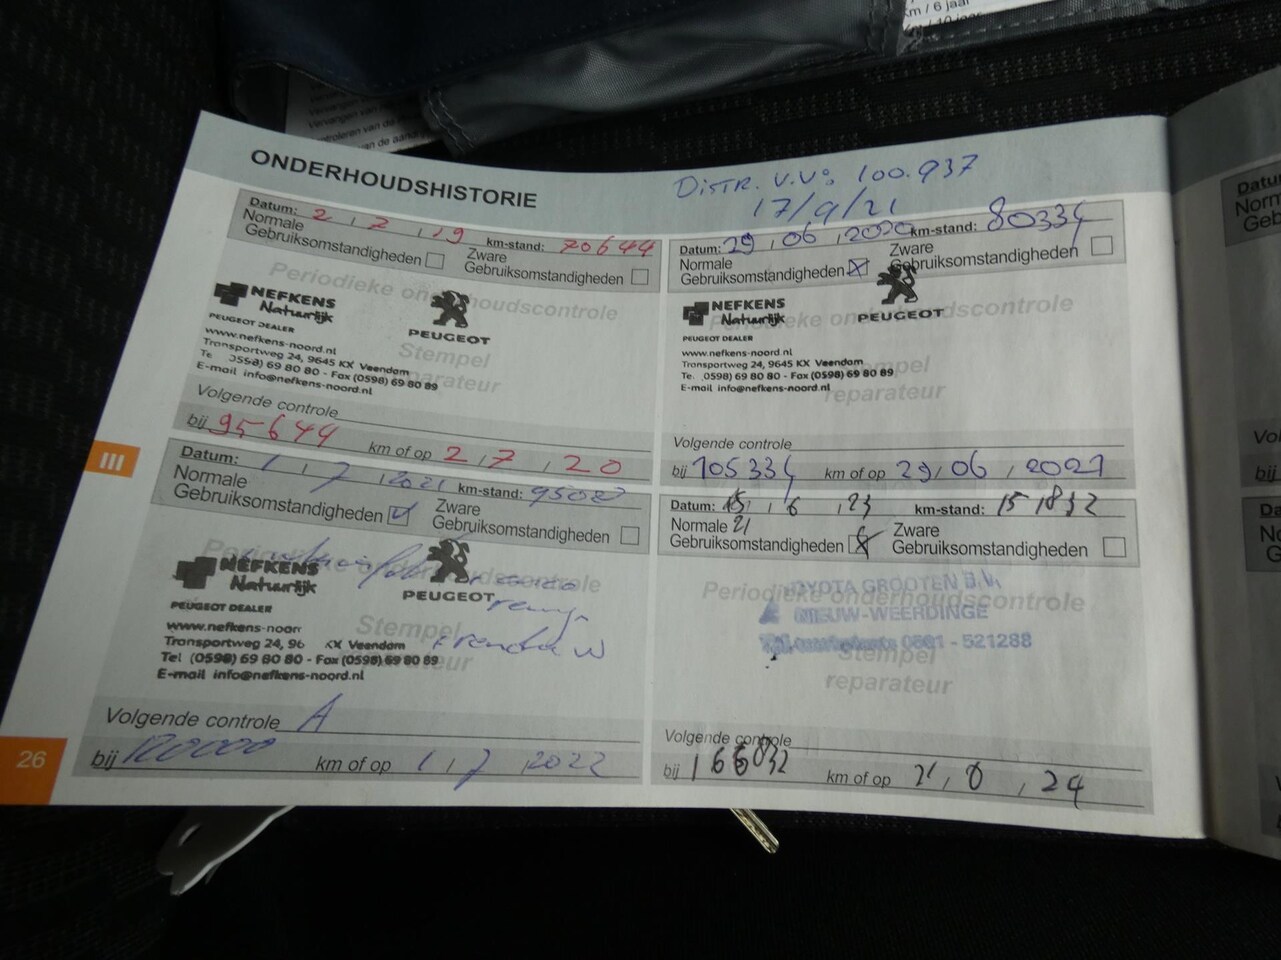 km / 6 jaar
ONDERHOUDSHISTORIE
DISTR. V.V: 100.937
17/9/21
Datum: 2, 2, 19 km-stand: 70644
Normale Gebruiksomstandigheden
Zware Gebruiksomstandigheden
Periodieke onderhoudscontrole
NEFKENS
Natuurlijk
PEUGEOT DEALER
PEUGEOT
www.nefkens-noord.nl
Transportweg 24, 9645 KX Veendam
Te 0598) 69 80 80 - Fax (0598) 69 80 89
E-mail info@nefkens-noord.nl
Stempel
reparateur
Volgende controle
bij 95644 km of op 2, 7, 20
Datum: 29, 06, 2020 km-stand: 80334
Normale Gebruiksomstandigheden
Zware Gebruiksomstandigheden
Periodieke onderhoudscontrole
NEFKENS
Natuurlijk
PEUGEOT DEALER
PEUGEOT
www.nefkens-noord.nl
Transportweg 24, 9645 KX Veendam
Te. (0598) 69 80 80 - Fax (0598) 69 80 89
E-mail info@nefkens-noord.nl
Stempel
reparateur
Volgende controle
bij 105334 km of op 29, 06, 2021
III
Datum: 1, 7, 2021 km-stand:
Normale Gebruiksomstandigheden
Zware Gebruiksomstandigheden
Periodieke onderhoudscontrole
NEFKENS
Natuurlijk
PEUGEOT DEALER
PEUGEOT
www.nefkens-noord
Transportweg 24, 96 KX Veendam
Tel (0598) 69 80 80 - Fax (0598) 69 80 89
E-mail info@nefkens-noord.nl
Stempel
reparateur
Volgende controle A
bij 120000 km of op 1, 7, 2022
Datum: 15, 6, 23 km-stand: 151832
21
Normale Gebruiksomstandigheden
Zware Gebruiksomstandigheden
Periodieke onderhoudscontrole
OYOTA GROOTEN B.V.
NIEUW-WEERDINGE
521288
Stempel
reparateur
Volgende controle
bij 166832 km of op 21, 24
26